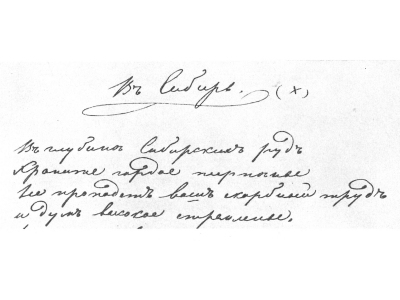 Въ Сибирь. (х)
Въ глубинѣ Сибирскихъ рудъ
Храните гордое терпѣнье
Не пропадетъ вашъ скорбный трудъ
и думъ высокое стремленье.